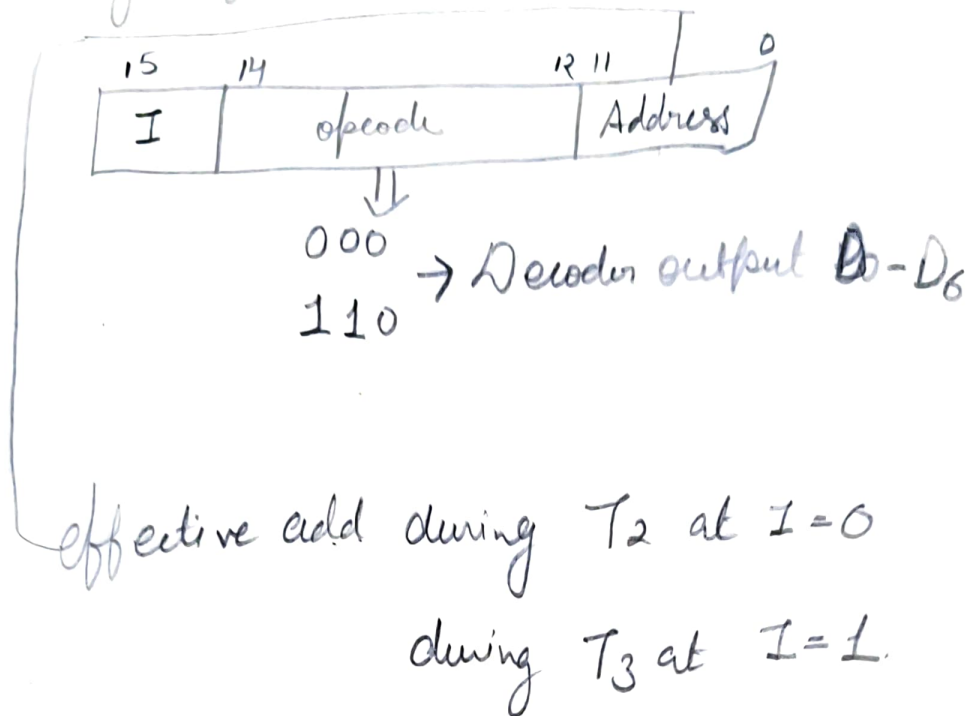 15 14 12 11 0
I opcode Address
000
→ Decoder output D0-D6
110
effective add during T2 at I=0
during T3 at I=1.